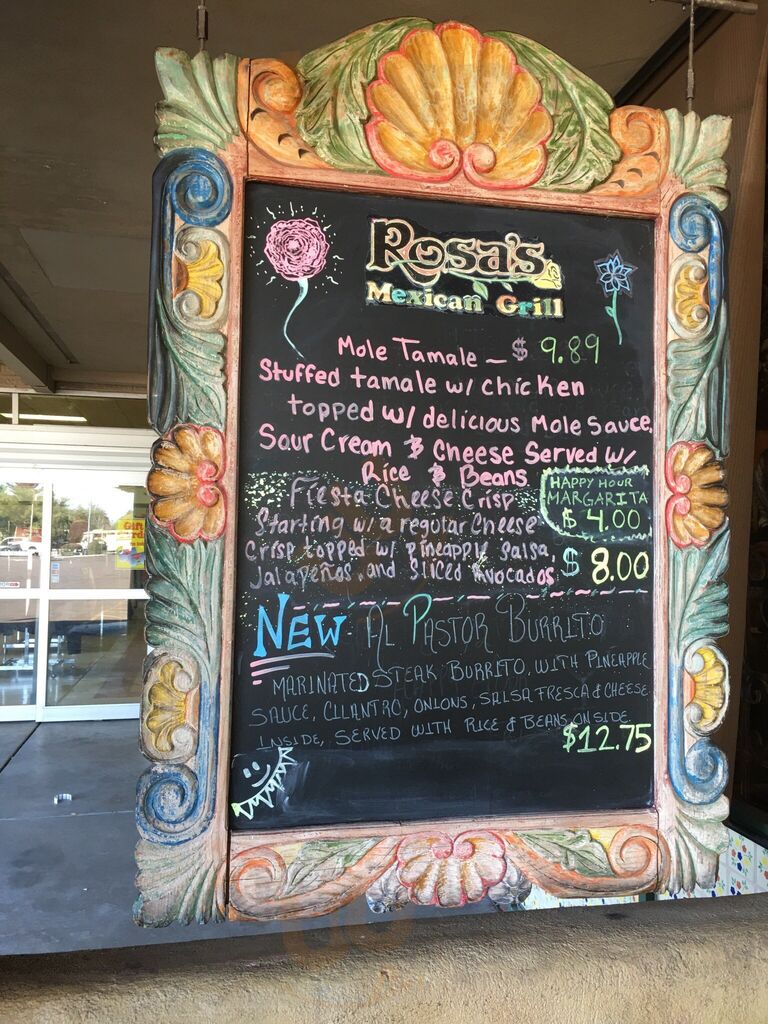 Rosa's
Mexican Grill
Mole Tamale - $ 9.89
Stuffed tamale w/ chicken
topped w/ delicious Mole Sauce,
Sour Cream & Cheese Served w/
Rice & Beans
Fiesta Cheese Crisp
HAPPY HOUR
MARGARITA
$ 4.00
Starting w/ a regular Cheese
Crisp topped w/ pineapple salsa,
Jalapeños, and Sliced Avocados $ 8.00
NEW AL PASTOR BURRITO
MARINATED STEAK BURRITO, WITH PINEAPPLE
SAUCE, CILANTRO, ONIONS, SALSA FRESCA & CHEESE
INSIDE, SERVED WITH RICE & BEANS ON SIDE
$12.75